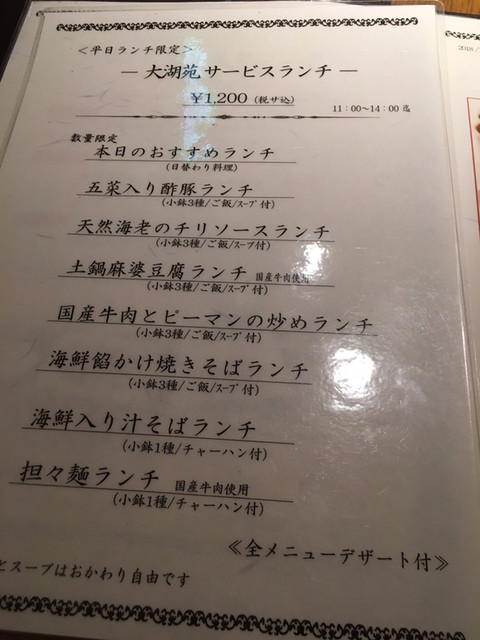 <平日ランチ限定>
― 大湖苑サービスランチ ―
¥1,200 (税サ込)
11:00~14:00 迄
数量限定
本日のおすすめランチ
(日替わり料理)
五菜入り酢豚ランチ
(小鉢3種/ご飯/スープ付)
天然海老のチリソースランチ
(小鉢3種/ご飯/スープ付)
土鍋麻婆豆腐ランチ 国産牛肉使用
(小鉢3種/ご飯/スープ付)
国産牛肉とピーマンの炒めランチ
(小鉢3種/ご飯/スープ付)
海鮮餡かけ焼きそばランチ
(小鉢3種/ご飯/スープ付)
海鮮入り汁そばランチ
(小鉢1種/チャーハン付)
担々麺ランチ 国産牛肉使用
(小鉢1種/チャーハン付)
≪全メニューデザート付≫
とスープはおかわり自由です
2018